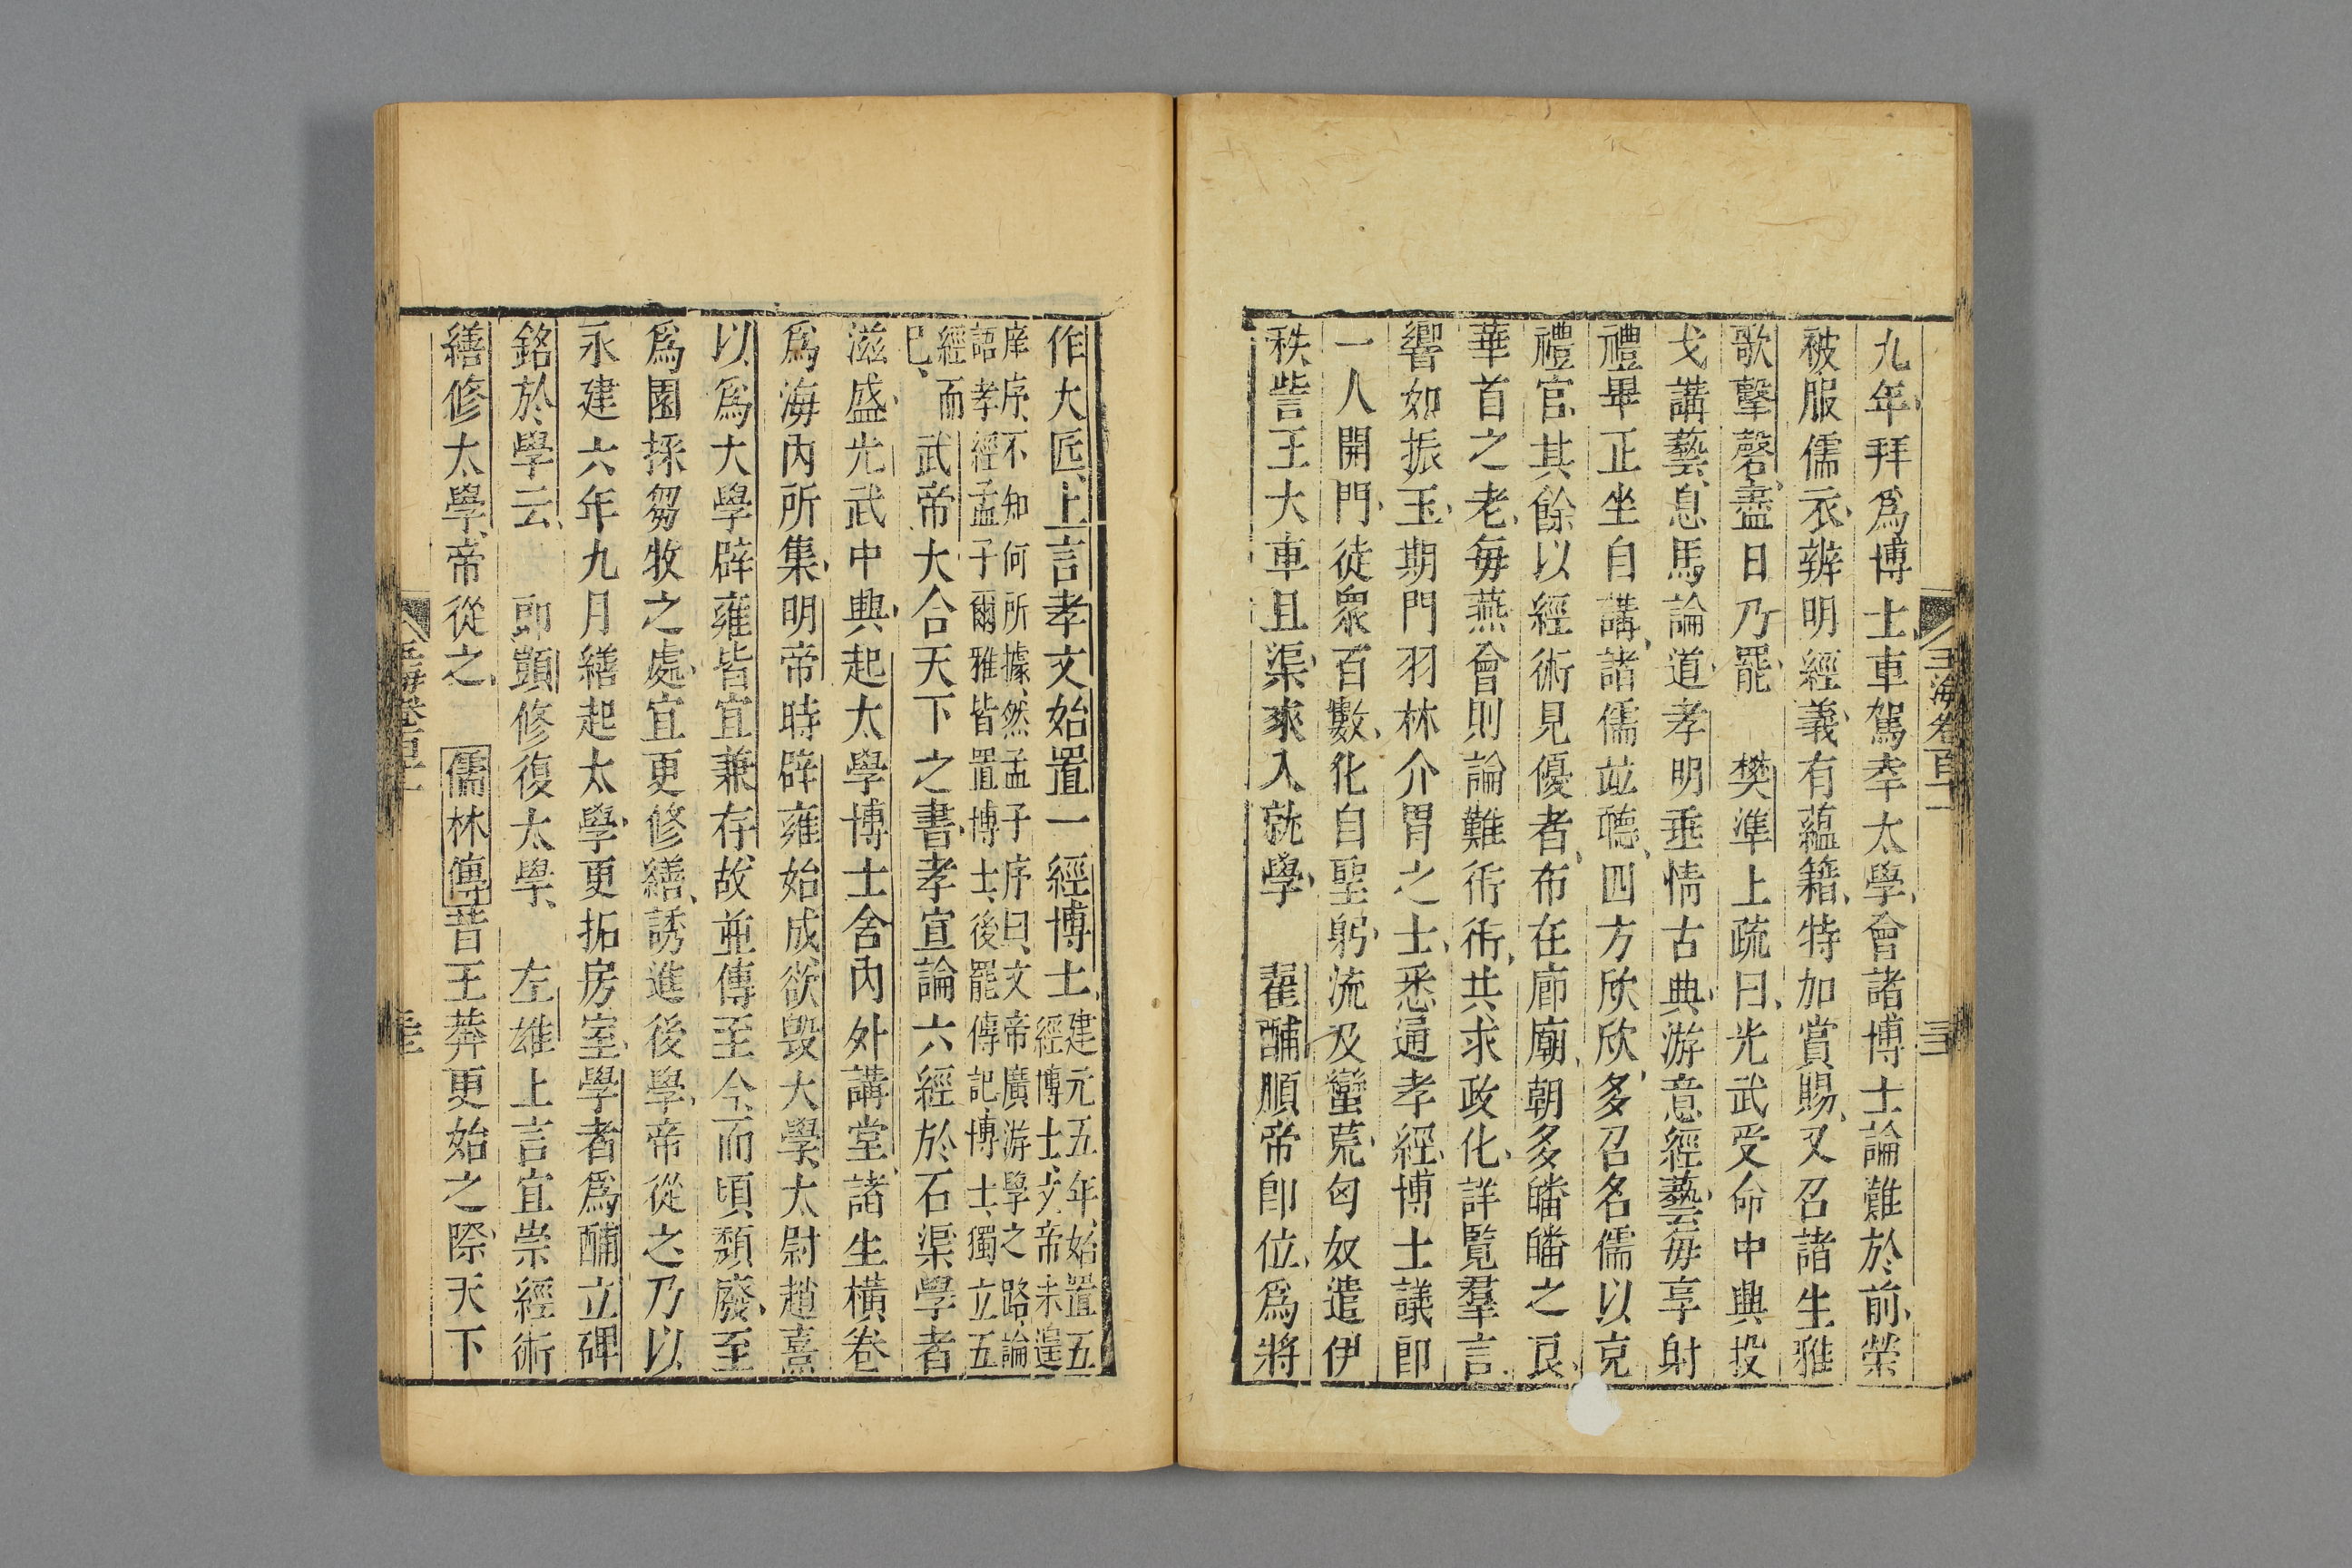 九年拜爲博士車駕幸太學會諸博士論難於前榮
被服儒衣辨明經義有蘊籍特加賞賜又召諸生雅
歌擊磬盡日乃罷　樊準上疏曰光武受命中興投
戈講藝息馬論道孝明垂情古典游意經藝每享射
禮畢正坐自講諸儒竝聽四方欣欣多召名儒以克
禮官其餘以經術見優者布在廊廟朝多皤皤之良
華首之老每燕會則論難衎衎共求政化詳覽羣言
響如振玉期門羽林介胃之士悉通孝經博士議郎
一人開門徒衆百數化自聖躬流及蠻荒匈奴遣伊
秩訾王大車且渠來入就學　翟酺順帝卽位爲將
玉海卷百十一
三三
作大匠上言孝文始置一經博士建元五年始置五
經博士文帝未遑
庠序不知何所據然孟子序曰文帝廣游學之路論
語孝經孟子爾雅皆置博士後罷傳記博士獨立五
經而
已
武帝大合天下之書孝宣論六經於石渠學者
滋盛光武中興起太學博士舍內外講堂諸生橫卷
爲海內所集明帝時辟雍始成欲毀大學太尉趙熹
以爲大學辟雍皆宜兼存故並傳至今而頃頽廢至
爲園採芻牧之處宜更修繕誘進後學帝從之乃以
永建六年九月繕起太學更拓房室學者爲酺立碑
銘於學云　卽顗修復太學　左雄上言宜崇經術
繕修太學帝從之　儒林傳昔王莽更始之際天下